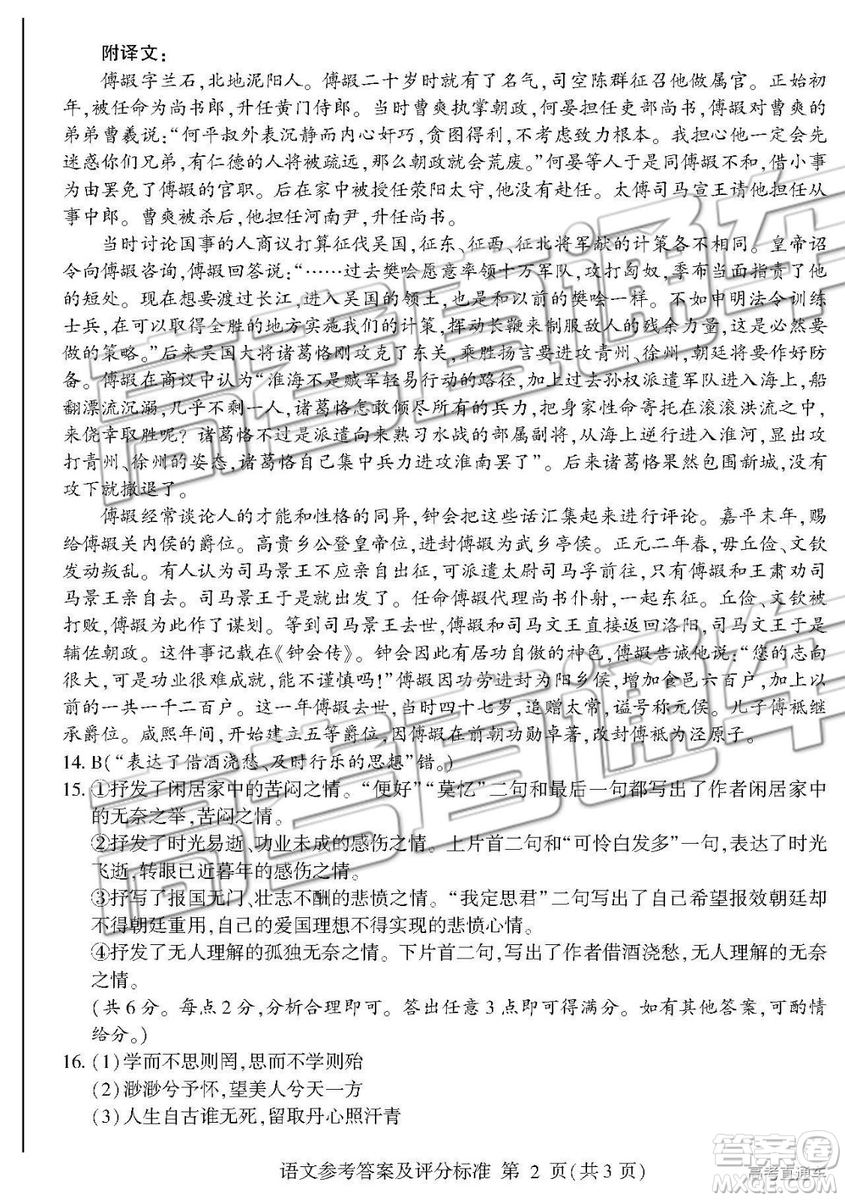 附译文：
傅嘏字兰石，北地泥阳人。傅嘏二十岁时就有了名气，司空陈群征召他做属官。正始初
年，被任命为尚书郎，升任黄门侍郎。当时曹爽执掌朝政，何晏担任吏部尚书，傅嘏对曹爽的
弟弟曹羲说：“何平叔外表沉静而内心奸巧，贪图得利，不考虑致力根本。我担心他一定会先
迷惑你们兄弟，有仁德的人将被疏远，那么朝政就会荒废。”何晏等人于是同傅嘏不和，借小事
为由罢免了傅嘏的官职。后在家中被授任荥阳太守，他没有赴任。太傅司马宣王请他担任从
事中郎。曹爽被杀后，他担任河南尹，升任尚书。
当时讨论国事的人商议打算征伐吴国，征东、征西、征北将军献的计策各不相同。皇帝诏
令向傅嘏咨询，傅嘏回答说：“……过去樊哙愿意率领十万军队，攻打匈奴，季布当面指责了他
的短处。现在想要渡过长江，进入吴国的领土，也是和以前的樊哙一样。不如申明法令训练
士兵，在可以取得全胜的地方实施我们的计策，挥动长鞭来制服敌人的残余力量，这是必然要
做的策略。”后来吴国大将诸葛恪刚攻克了东关，乘胜扬言要进攻青州、徐州，朝廷将要作好防
备。傅嘏在商议中认为“淮海不是贼军轻易行动的路径，加上以前孙权派遣军队进入海上，船
翻漂流沉溺，几乎不剩一人，诸葛恪怎敢倾尽所有的兵力，把身家性命寄托在滚滚洪流之中，
来侥幸取胜呢？诸葛恪不过是派遣向来熟习水战的部属副将，从海上逆行进入淮河，显出攻
打青州、徐州的姿态，诸葛恪自己集中兵力进攻淮南罢了”。后来诸葛恪果然包围新城，没有
攻下就撤退了。
傅嘏经常谈论人的才能和性格的同异，钟会把这些话汇集起来进行评论。嘉平末年，赐
给傅嘏关内侯的爵位。高贵乡公登皇帝位，进封傅嘏为武乡亭侯。正元二年春，毋丘俭、文钦
发动叛乱。有人认为司马景王不应亲自出征，可派遣太尉司马孚前往，只有傅嘏和王肃劝司
马景王亲自去。司马景王于是就出发了。任命傅嘏代理尚书仆射，一起东征。丘俭、文钦被
打败，傅嘏为此作了谋划。等到司马景王去世，傅嘏和司马文王直接返回洛阳，司马文王于是
辅佐朝政。这件事记载在《钟会传》。钟会从此有居功自傲的神色，傅嘏告诫他说：“您的志向
很大，可是功业很难成就，能不谨慎吗！”傅嘏因功劳进封为阳乡侯，增加食邑六百户，加上以
前的一共一千二百户。这一年傅嘏去世，当时四十七岁，追赠太常，谥号称元侯。儿子傅祗继
承爵位。咸熙年间，开始建立五等爵位，因傅嘏在前朝功勋卓著，改封傅祗为泾原子。
14. B(“表达了借酒浇愁、及时行乐的思想”错。)
15. ①抒发了闲居家中的苦闷之情。“便好”“莫忆”二句和最后一句都写出了作者闲居家中
的无奈之举，苦闷之情。
②抒发了时光易逝、功业未成的感伤之情。上片首二句和“可怜白发多”一句，表达了时光
飞逝，转眼已近暮年的感伤之情。
③抒写了报国无门、壮志不酬的悲愤之情。“我定思君”二句写出了自己希望报效朝廷却
不得朝廷重用，自己的爱国理想不得实现的悲愤心情。
④抒发了无人理解的孤独无奈之情。下片首二句，写出了作者借酒浇愁，无人理解的无奈
之情。
(共6分。每点2分，分析合理即可。答出任意3点即可得满分。如有其他答案，可酌情
给分。)
16. (1)学而不思则罔，思而不学则殆
(2)渺渺兮予怀，望美人兮天一方
(3)人生自古谁无死，留取丹心照汗青
语文参考答案及评分标准 第 2 页(共3页)
高考直通车
答案圈
MXQE.COM
高考直通车